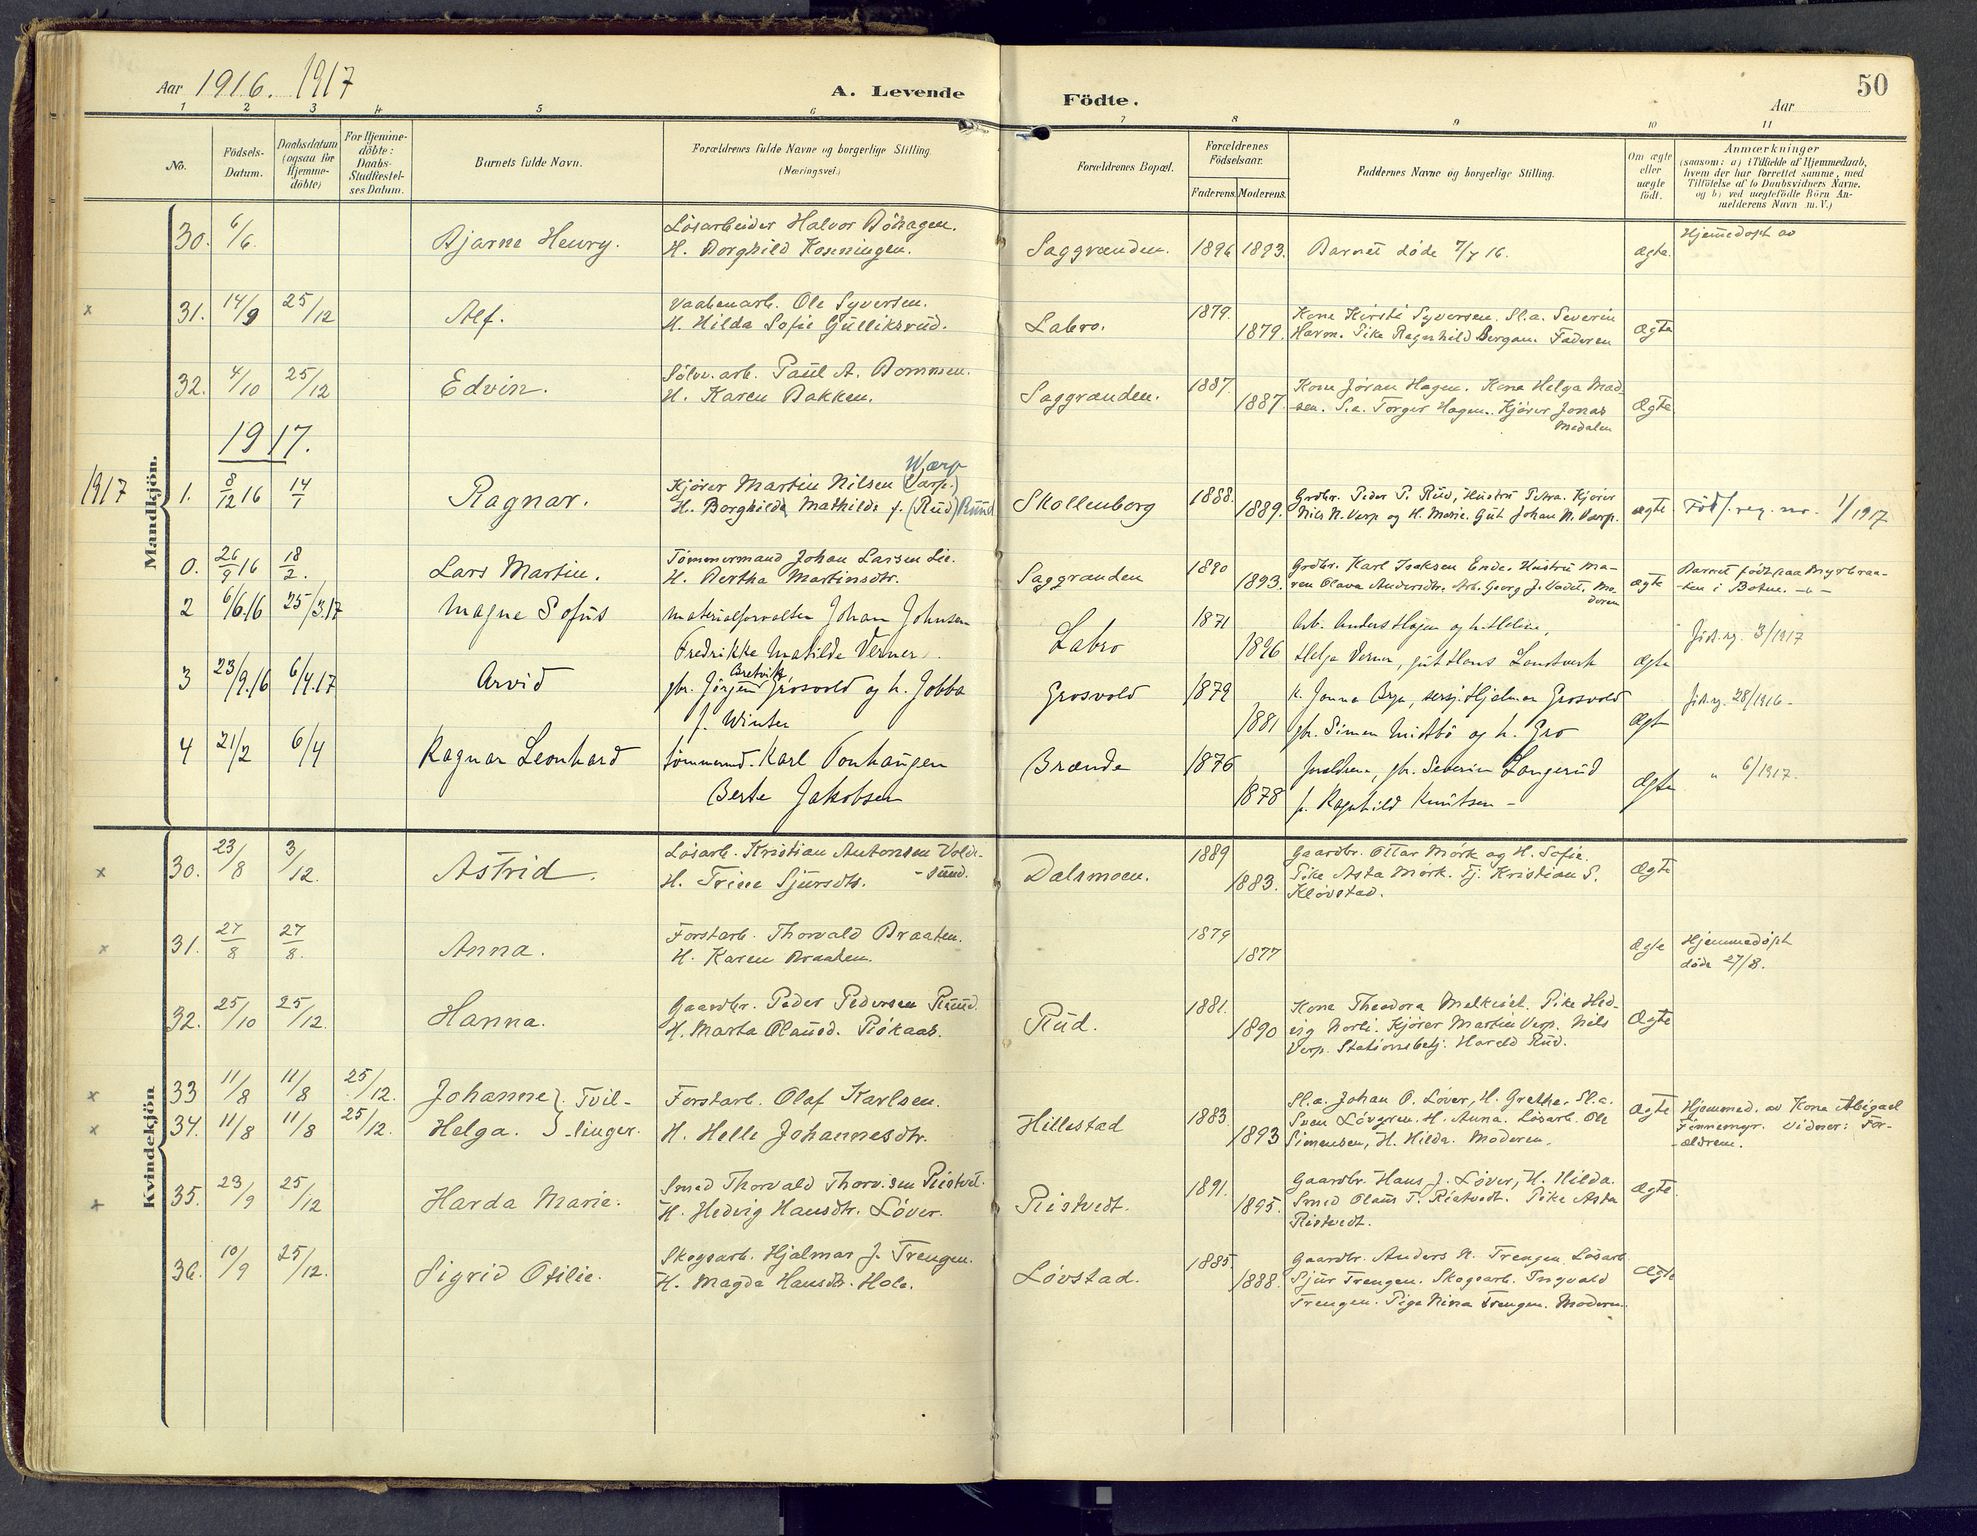 Aar 1916. 1917
A. Levende Födte.
Aar
50
1 2 3 4 5 6 7 8 9 10 11
No.
Födsels-Datum.
Daabsdatum (ogsaa for Hjemme-döbte)
For Hjemme-döbte: Daabs-Stadfæstel-ses Datum.
Barnets fulde Navn.
Forældrenes fulde Navne og borgerlige Stilling.
(Næringsvei.)
Forældrenes Bopæl.
Forældrenes Födselsaar.
Faderens Moderens.
Faddernes Navne og borgerlige Stilling.
Om ægte eller uægte födt.
Anmærkninger
(saasom: a) i Tilfælde af Hjemmedaab,
hvem der har forrettet samme, med
Tilföielse af to Daabsvidners Navne,
og b) ved uægtefödte Börn An-
melderens Navn m. V.)
Mandkjön.
30. 6/6. Bjarne Henry. Løsarbeider Halvor Böhagen. Saggrænden. 1896 1893. Barnet døde 7/7 16. ægte. Hjemedøpt av
H. Borghild Konningen.
x 31. 14/9 25/12 Alf. Vaabenarb. Ole Syversen. Labro. 1879. Kone Kirsti Syversen. Sl.a. Severin
H. Hilda Sofie Gulliksrud. 1879. Havn. Pike Ragnhild Bergan. Faderen ægte
32. 4/10 25/12 Edvin. Sølv.arb. Paul A. Bommen. Saggrænden. 1887. Kone Jøran Hagen. Kone Helga Mad-
H. Karen Bakken. 1887. sen. S.a. Torger Hagen. Kjører Jonas ægte
Medalen
1917.
Wærp
1917 1. 8/12 16 14/1 Ragnar. Kjører Martin Nilsen (Varp.) Skollenborg 1888. Grdbr. Peder P. Rud, Hustru Petra. Kjører
H. Borghilde Mathilde f. (Rud) Ruud 1889. Nils N. Verp og H. Marie. Gut Johan N. Værp. ægte Föds. reg. no. 1/1917
0. 26/9 16 18/2. Lars Martin. Tømmermand Johan Larsen Lie. Saggrænden 1890 Grdbr. Karl Isaksen Ende. Hustru Ma-
H. Bertha Martinsdtr. 1893. ren Olava Andersdtr. Arb. Georg J. Vadet. Mo-
deren ægte Barnet født paa Myrbraa-
ten i Botne.
2 6/6.16 25/3.17 Magne Sofus materialforvalter Johan Johnsen Labro 1871 Arb. Anders Hagen og h. Helene,
Fredrikke Matilde Verner. 1896 Helga Verner, gut Hans Landverk ægte Föds.rg. 3/1917
3 23/9.16 6/4.17 Arvid gbr. Jørgen Bretvik Grosvold og h. Jobba Grosvold 1879
f. Winter 1881 gbr. Simen Midtbö og h. Gro ægte Föds.rg. 28/1916
4 21/2 6/4 Ragnar Leonhard tömmermd. Karl Tonhaugen Brænde 1876 Foreldrene, gbr. Severin Langerud
Berte Jakobsen 1878 p. Ragnhild Knutsen ægte " 6/1917.
Kvindekjön
x 30. 23/8 3/12. Astrid. Løsarb. Kristian Antonsen Volde- Dalsmoen. 1889 Gaardbr. Ottar Mørk og H. Sofie.
-sund. H. Trine Sjursdtr. 1883. Pike Asta Mørk. Tj. Kristian S. ægte
Kløvstad.
x 31. 27/8 27/8. Anna. Forstarb. Thorvald Braaten. 1879 Hjemmedøpt
H. Karen Braaten. 1877 ægte døde 27/8.
32. 25/10 25/12. Hanna. Gaardbr. Peder Pedersen Ruud. Rud. 1881. Kone Theodora Melkisøt. Pike Hed-
H. Marta Olausd. Piökaas. 1890 vig Norli. Kjører Martin Verp. Nils ægte
Verp. Stationsbetj. Harald Rud.
x 33 11/8 11/8 25/12. Johanne Tvil- Forstarb. Olaf Karlsen. Hillestad 1883. Sl.a. Johan O. Løver, H. Grethe. Sl.a.
x 34. 11/8 11/8 25/12. Helga. linger. H. Helle Johannesdtr. 1893 Sven Lövgren. H. Anna. Løsarb. Ole ægte Hjemmed. av Kone Abigael
Simensen, H. Hilda. Moderen. Finnemyr. Vidner: For-
ældrene.
x 35. 23/9 25/12 Harda Marie. Smed Thorvald Thorv.sen Ristvet. Ristvedt. 1891. Gaardbr. Hans J. Løver, H. Hilda.
H. Hedvig Hansdtr. Løver. 1895. Smed Olaus T. Ristvedt. Pike Asta ægte.
Ristvedt.
36. 10/9 25/12. Sigrid Otilie. Skogsarb. Hjalmar J. Trengen. Løvstad. 1885. Gaardbr. Anders N. Trengen. Løsarb.
H. Magda Hansdtr. Hole. 1888. Sjur Trengen. Skogsarb. Ingvald ægte
Trengen. Pige Nina Trengen. Moderen.